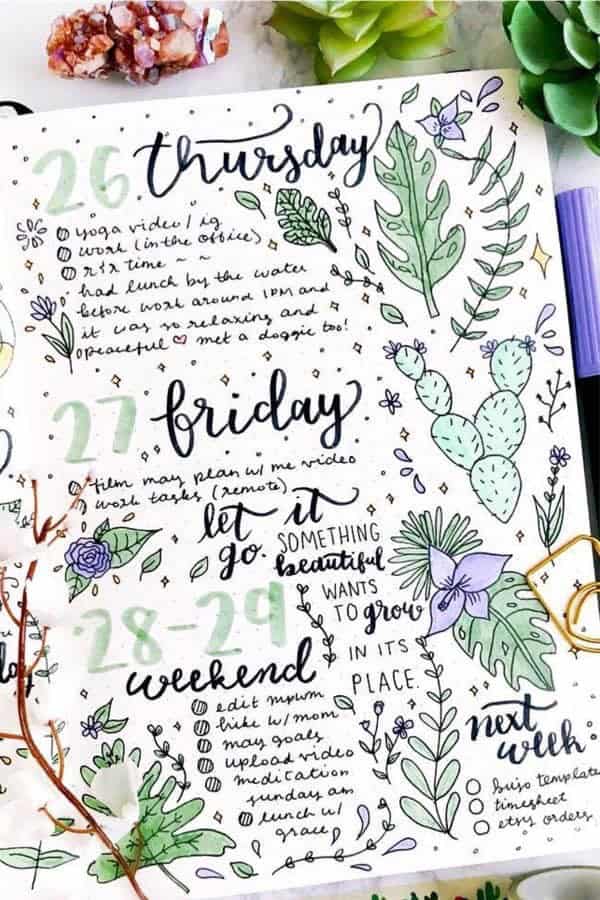 26 thursday
yoga video / ig
work (in the office)
r+r time ~ ~
had lunch by the water
before work around 1PM and
it was so relaxing and
peaceful ♡ met a doggie too!
27 friday
film may plan w/ me video
work tasks (remote)
let it
go.
SOMETHING
beautiful
WANTS
TO grow
IN ITS
PLACE.
28-29
weekend
edit mpwm
bike w/ mom
may goals
upload video
meditation
sunday am
lunch w/
grace
next
week
bujo template
timesheet
etsy orders